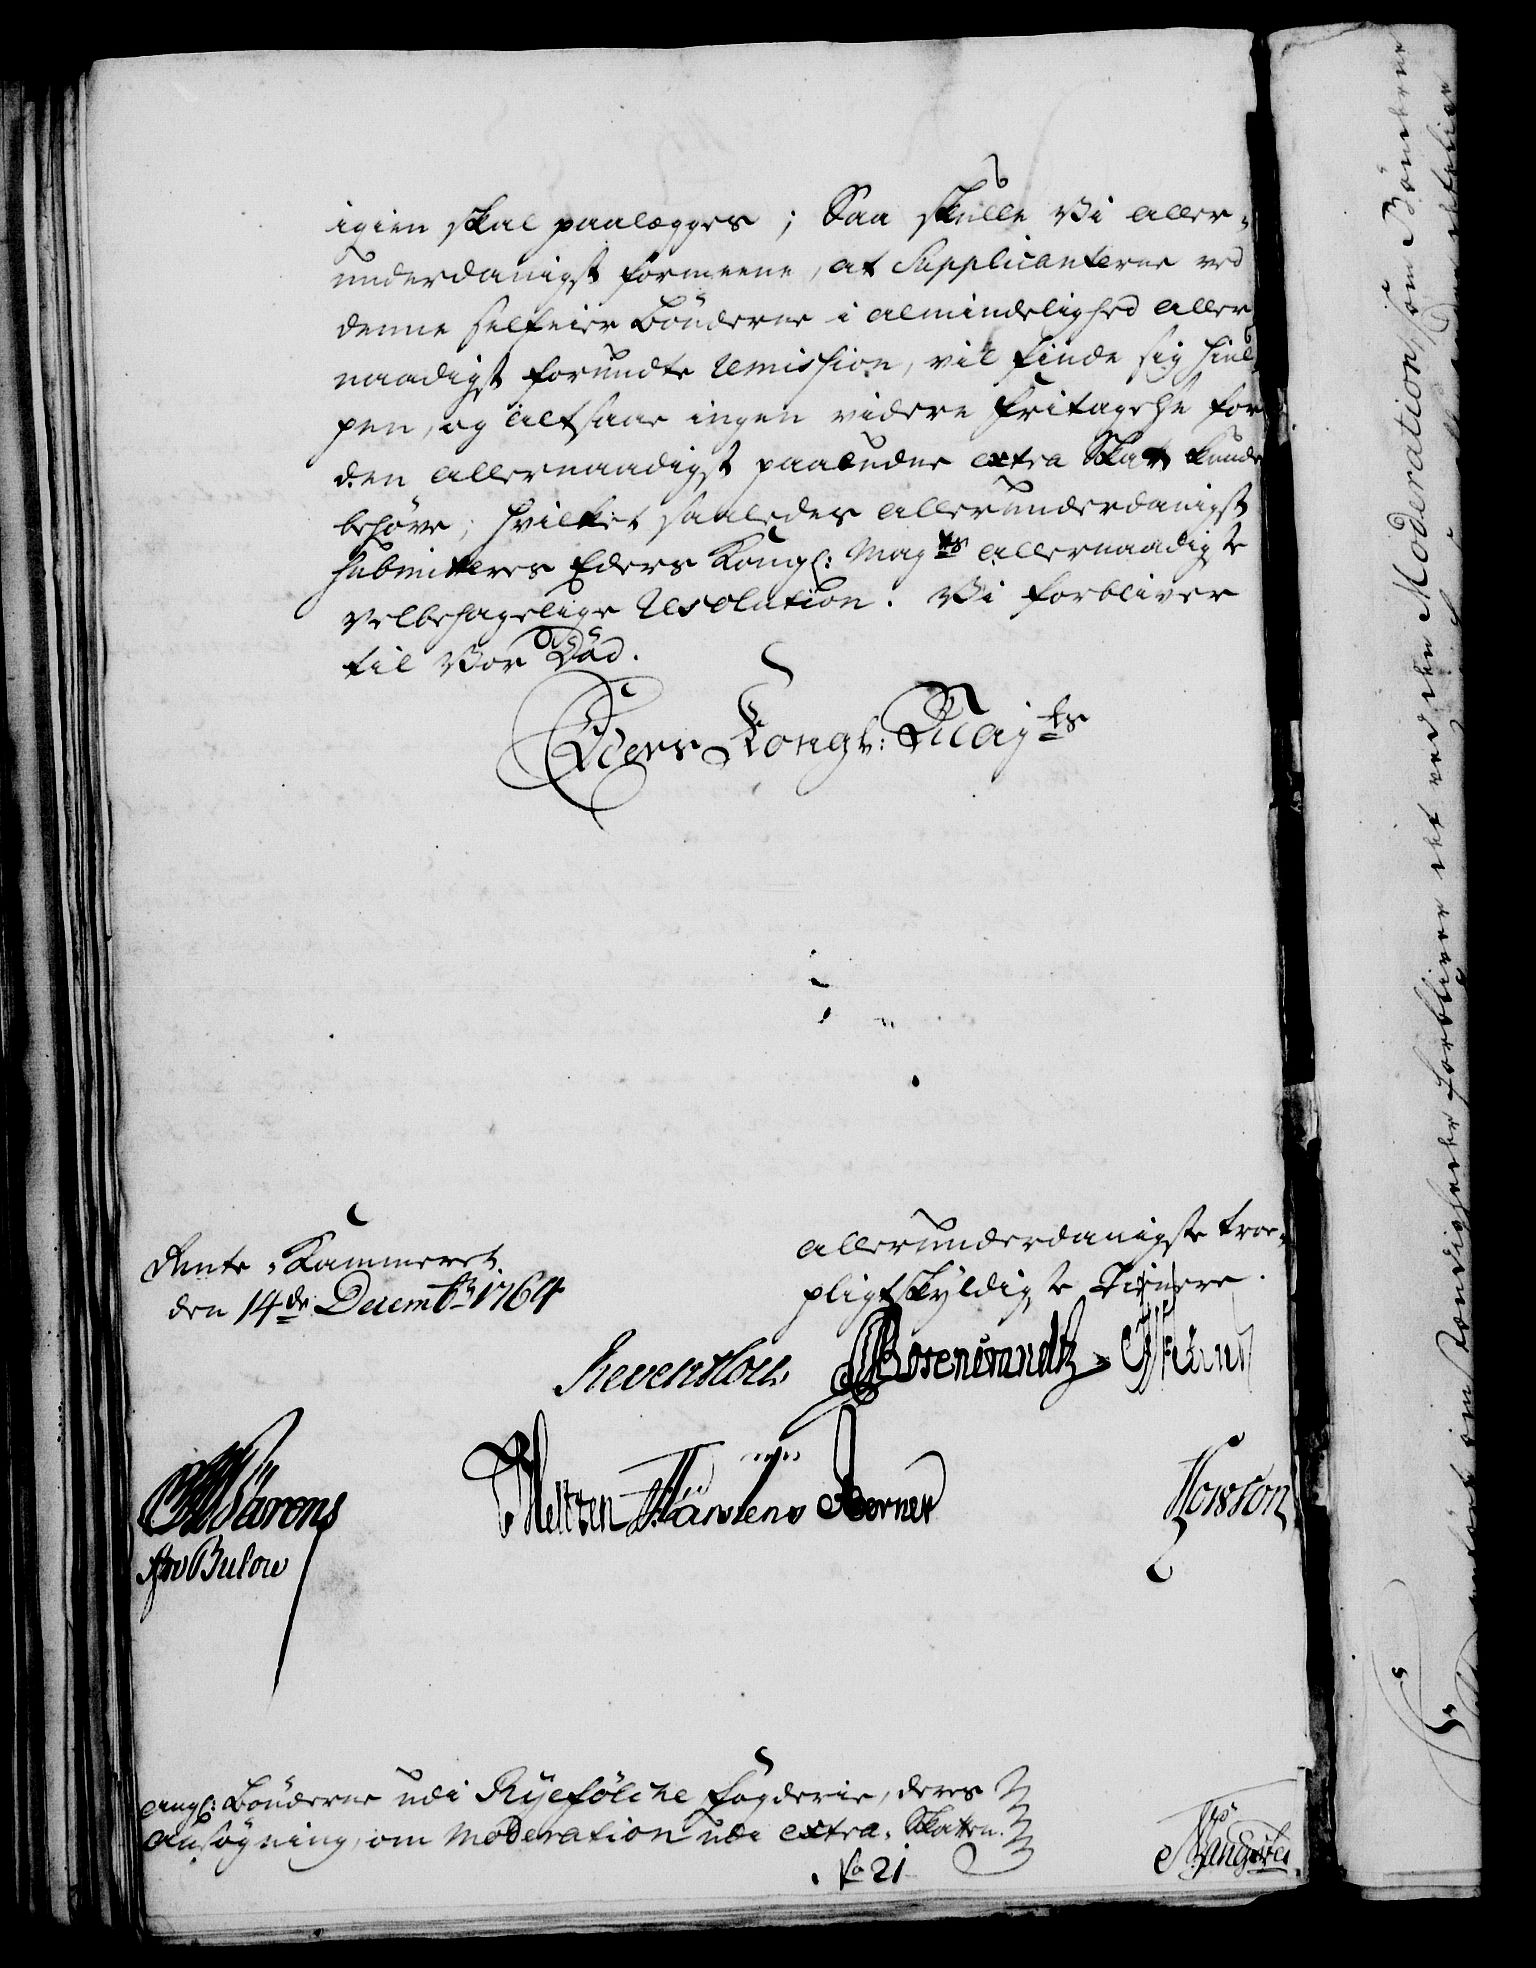 igien skal paalægges; Saa skulle Vi aller-
underdanigst formeene, at Supplicanterne ved
denne selfeier bönderne i almindelighed aller
naadigst forundte Remission, vil finde sig hiul
pen, og altsaae ingen videre fritagelse for
den allernaadigst paabudne extra Skat kunde
behöve; hvilket saaledes allerunderdanigst
submitteres Eders Kongl: Mayts allernaadigste
velbehagelige Resolution. Vi forbliver
til Vor Död.
Eders Kongl: Mayts
allerunderdanigste troe-
pligtskyldigste Tienere.
Rente-Kammeret
den 14de Decembr 1764
Reventlou
Rosencrandtz
Bärens
Hansens
Kerner
Bulow
angl: bönderne udi Ryefölche fogderie, deres
ansögning, om Moderation udi extra-Skatten.
No 21
den Moderation, som Bönderne
forbliver det ved